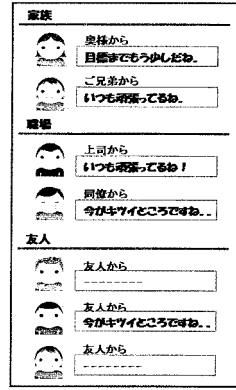 家族
奥様から
目標までもう少しだね。
ご兄弟から
いつも頑張ってるね。
職場
上司から
いつも頑張ってるね!
同僚から
今がキツイところですね。。
友人
友人から
---------
友人から
今がキツイところですね。。
友人から
---------